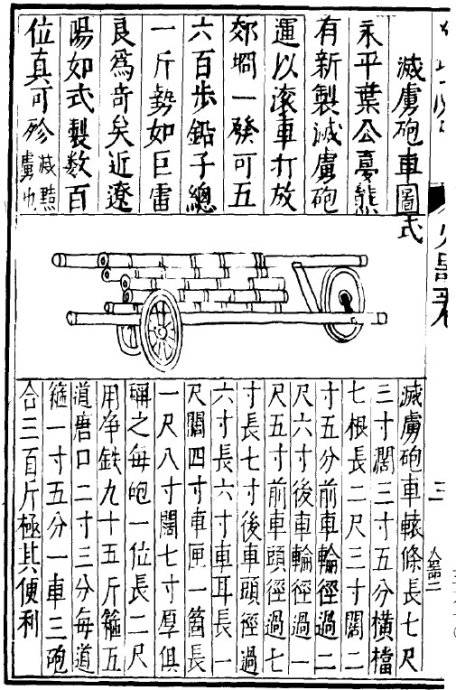 滅虜砲車圖式
永平葉公夢熊
有新製滅虜砲
運以滾車打放
郊坰一發可五
六百步鉛子總
一斤勢如巨雷
良爲奇矣近遼
陽如式製數百
位真可殄滅黠虜也
滅虜砲車轅條長七尺
三寸闊三寸五分橫檔
七根長二尺三寸闊二
寸五分前車輪徑過二
尺六寸後車輪徑過一
尺五寸前車頭徑過七
寸長七寸後車頭徑過
六寸長六寸車耳長一
尺闊四寸車匣一箇長
一尺八寸闊七寸厚俱
稱之每砲一位長二尺
用净鉄九十五斤箍五
道唐口二寸三分每道
箍一寸五分一車三砲
合三百斤極其便利
三